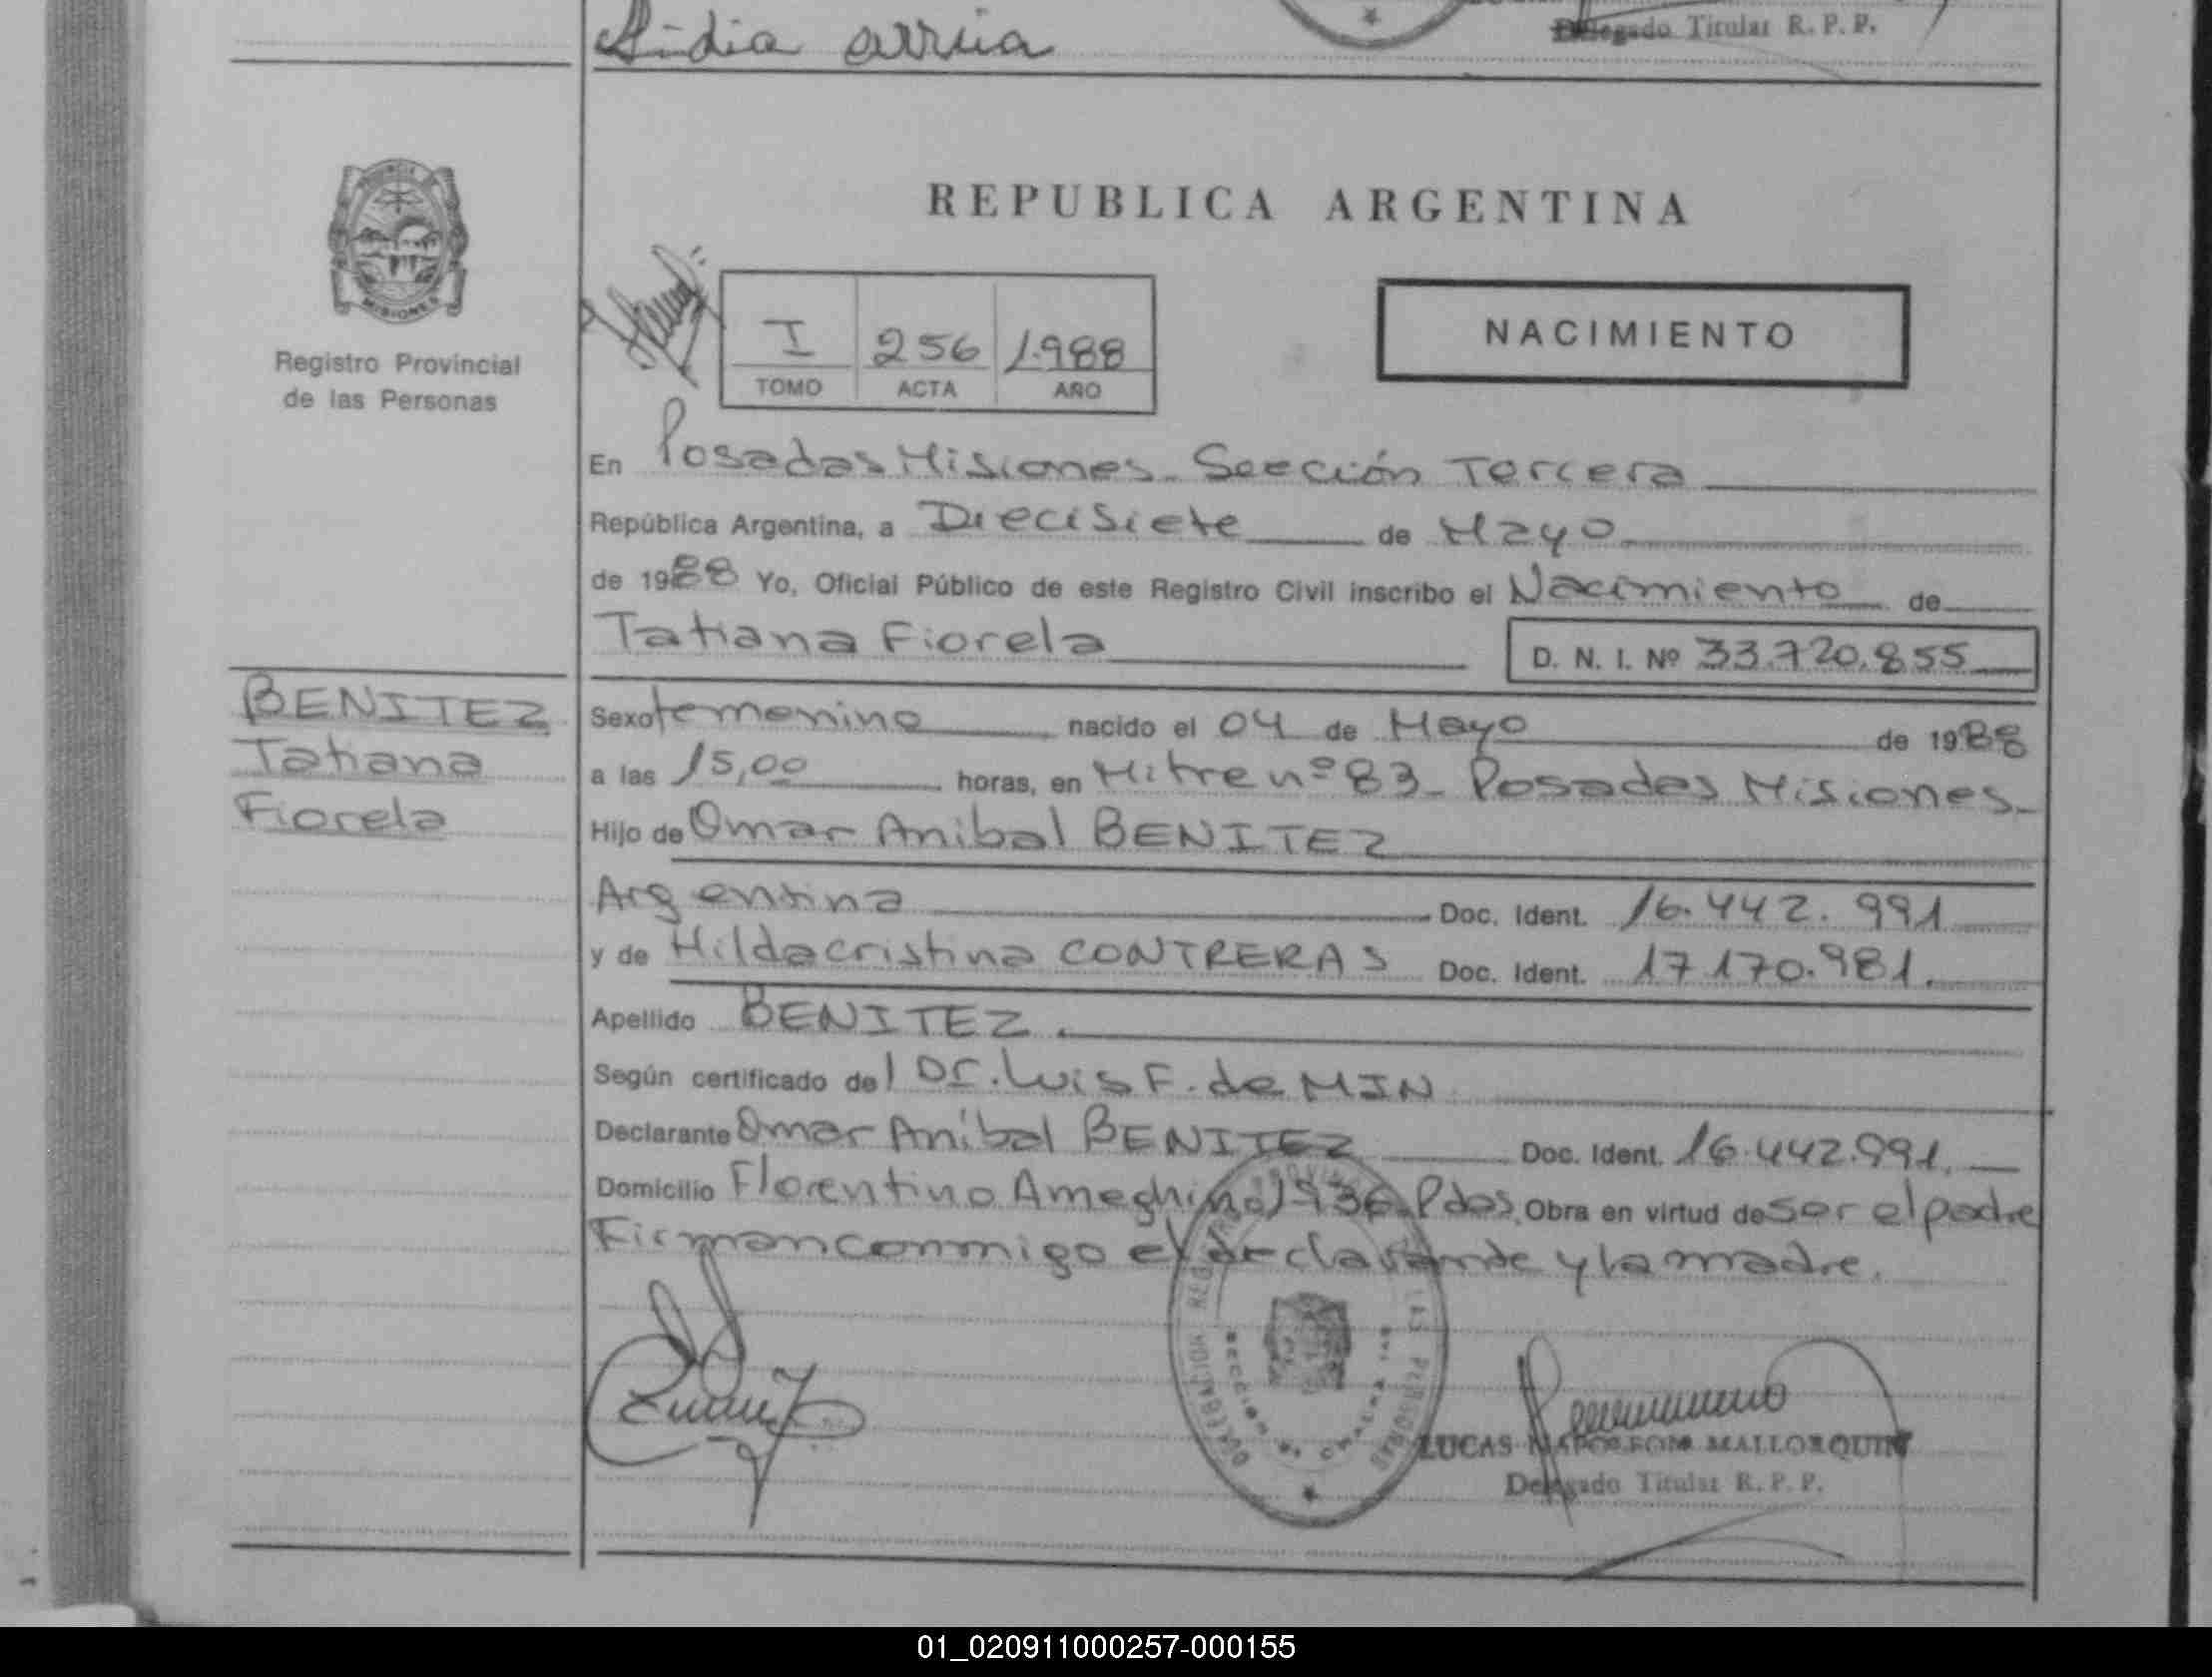 Lidia arrua
Delegado Titular R. P. P.
MISIONES
Registro Provincial
de las Personas
REPUBLICA ARGENTINA
I 256 1.988
TOMO ACTA AÑO
NACIMIENTO
En Posadas Misiones. Sección Tercera
República Argentina, a Diecisiete de Mayo
de 1988 Yo, Oficial Público de este Registro Civil inscribo el Nacimiento de
Tatiana Fiorela D. N. I. Nº 33.720.855
BENITEZ
Tatiana
Fiorela
Sexo femenino nacido el 04 de Mayo de 1988
a las 15,00 horas, en Mitre nº 83 - Posadas Misiones.
Hijo de Omar Anibal BENITEZ
Argentina Doc. Ident. 16.442.991
y de Hilda cristina CONTRERAS Doc. Ident. 17.170.981.
Apellido BENITEZ.
Según certificado del Dr. Luis F. de MIN
Declarante Omar Anibal BENITEZ Doc. Ident. 16.442.991.
Domicilio Florentino Ameghino 1936 Pdas. Obra en virtud de ser el padre
Firman conmigo el declarante y la madre.
LUCAS NAPOLEON MALLORQUIN
Delegado Titular R. P. P.
01_020911000257-000155